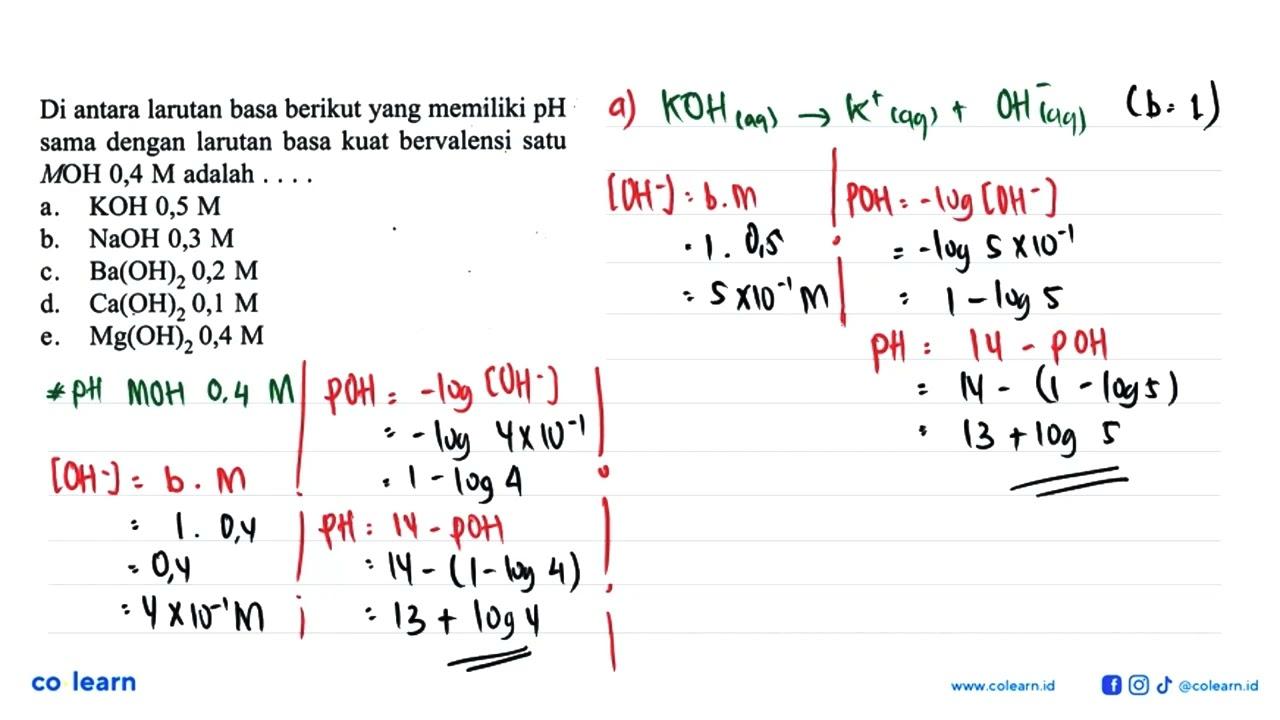 Di antara larutan basa berikut yang memiliki pH
sama dengan larutan basa kuat bervalensi satu
MOH 0,4 M adalah . . . .
a. KOH 0,5 M
b. NaOH 0,3 M
c. Ba(OH)₂ 0,2 M
d. Ca(OH)₂ 0,1 M
e. Mg(OH)₂ 0,4 M
* pH MOH 0.4 M
[OH⁻] = b . M
= 1 . 0,4
= 0,4
= 4 × 10⁻¹ M
POH = -log [OH⁻]
= -log 4 × 10⁻¹
= 1 - log 4
PH = 14 - POH
= 14 - (1 - log 4)
= 13 + log 4
a) KOH (aq) → K⁺ (aq) + OH⁻ (aq) (b = 1)
[OH⁻] = b . M
= 1 . 0,5
= 5 × 10⁻¹ M
POH = -log [OH⁻]
= -log 5 × 10⁻¹
= 1 - log 5
PH = 14 - POH
= 14 - (1 - log 5)
= 13 + log 5
co learn
www.colearn.id
@colearn.id